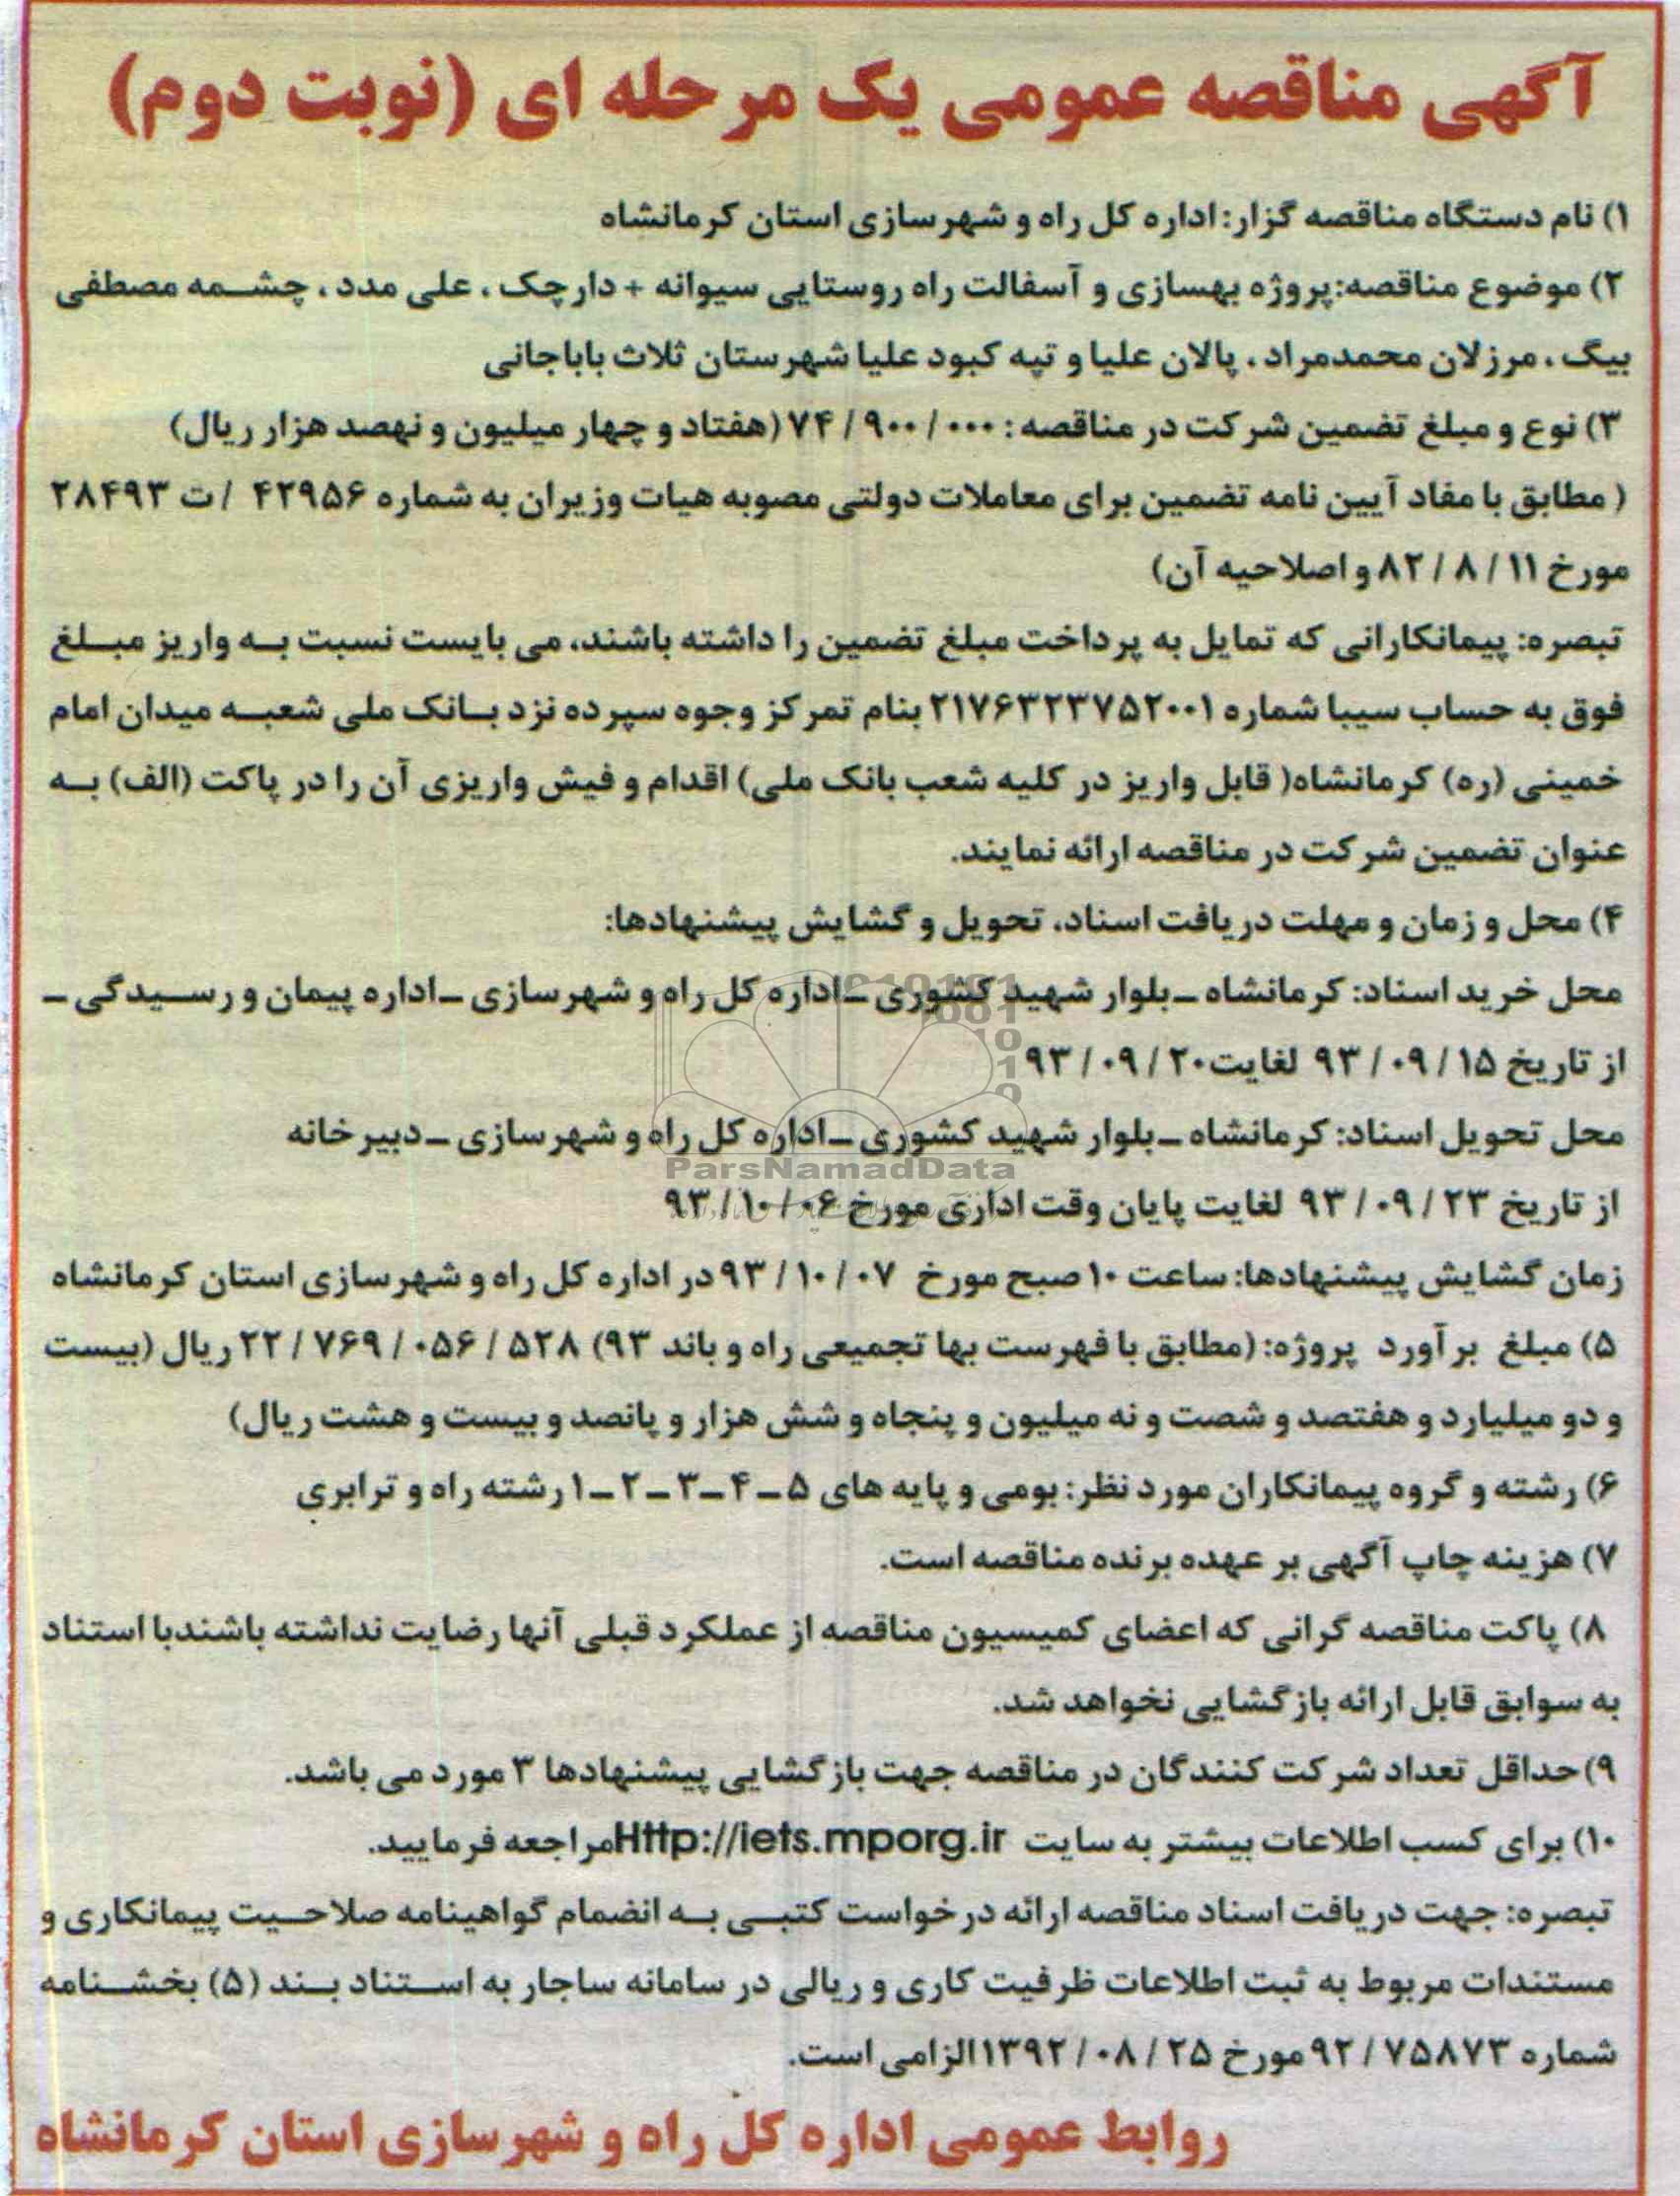 آگهی مناقصه عمومی یک مرحله ای (نوبت دوم)
۱) نام دستگاه مناقصه گزار: اداره کل راه و شهرسازی استان کرمانشاه
۲) موضوع مناقصه:پروژه بهسازی و آسفالت راه روستایی سیوانه + دارچک ، علی مدد ، چشمه مصطفی
بیگ ، مرزلان محمدمراد ، پالان علیا و تپه کبود علیا شهرستان ثلاث باباجانی
۳) نوع و مبلغ تضمین شرکت در مناقصه : ۷۴/۹۰۰/۰۰۰ (هفتاد و چهار میلیون و نهصد هزار ریال)
( مطابق با مفاد آیین نامه تضمین برای معاملات دولتی مصوبه هیات وزیران به شماره ۴۲۹۵۶ /ت ۲۸۴۹۳
مورخ ۸۲/۸/۱۱ و اصلاحیه آن)
تبصره: پیمانکارانی که تمایل به پرداخت مبلغ تضمین را داشته باشند، می بایست نسبت به واریز مبلغ
فوق به حساب سیبا شماره ۲۱۷۶۳۲۳۷۵۲۰۰۱ بنام تمرکز وجوه سپرده نزد بانک ملی شعبه میدان امام
خمینی (ره) کرمانشاه( قابل واریز در کلیه شعب بانک ملی) اقدام و فیش واریزی آن را در پاکت (الف) به
عنوان تضمین شرکت در مناقصه ارائه نمایند.
۴) محل و زمان و مهلت دریافت اسناد، تحویل و گشایش پیشنهادها:
محل خرید اسناد: کرمانشاه ـ بلوار شهید کشوری ـ اداره کل راه و شهرسازی ـ اداره پیمان و رسیدگی ـ
از تاریخ ۹۳/۰۹/۱۵ لغایت ۹۳/۰۹/۲۰
محل تحویل اسناد: کرمانشاه ـ بلوار شهید کشوری ـ اداره کل راه و شهرسازی ـ دبیرخانه
ParsNamadData
از تاریخ ۹۳/۰۹/۲۳ لغایت پایان وقت اداری مورخ ۹۳/۱۰/۰۶
زمان گشایش پیشنهادها: ساعت ۱۰ صبح مورخ ۹۳/۱۰/۰۷ در اداره کل راه و شهرسازی استان کرمانشاه
۵) مبلغ برآورد پروژه: (مطابق با فهرست بها تجمیعی راه و باند ۹۳) ۲۲/۷۶۹/۰۵۶/۵۲۸ ریال (بیست
و دو میلیارد و هفتصد و شصت و نه میلیون و پنجاه و شش هزار و پانصد و بیست و هشت ریال)
۶) رشته و گروه پیمانکاران مورد نظر: بومی و پایه های ۵ ـ ۴ ـ ۳ ـ ۲ ـ ۱ رشته راه و ترابری
۷) هزینه چاپ آگهی بر عهده برنده مناقصه است.
۸) پاکت مناقصه گرانی که اعضای کمیسیون مناقصه از عملکرد قبلی آنها رضایت نداشته باشندبا استناد
به سوابق قابل ارائه بازگشایی نخواهد شد.
۹) حداقل تعداد شرکت کنندگان در مناقصه جهت بازگشایی پیشنهادها ۳ مورد می باشد.
۱۰) برای کسب اطلاعات بیشتر به سایت Http://iets.mporg.ir مراجعه فرمایید.
تبصره: جهت دریافت اسناد مناقصه ارائه درخواست کتبی به انضمام گواهینامه صلاحیت پیمانکاری و
مستندات مربوط به ثبت اطلاعات ظرفیت کاری و ریالی در سامانه ساجار به استناد بند (۵) بخشنامه
شماره ۹۲/۷۵۸۷۳ مورخ ۱۳۹۲/۰۸/۲۵ الزامی است.
روابط عمومی اداره کل راه و شهرسازی استان کرمانشاه